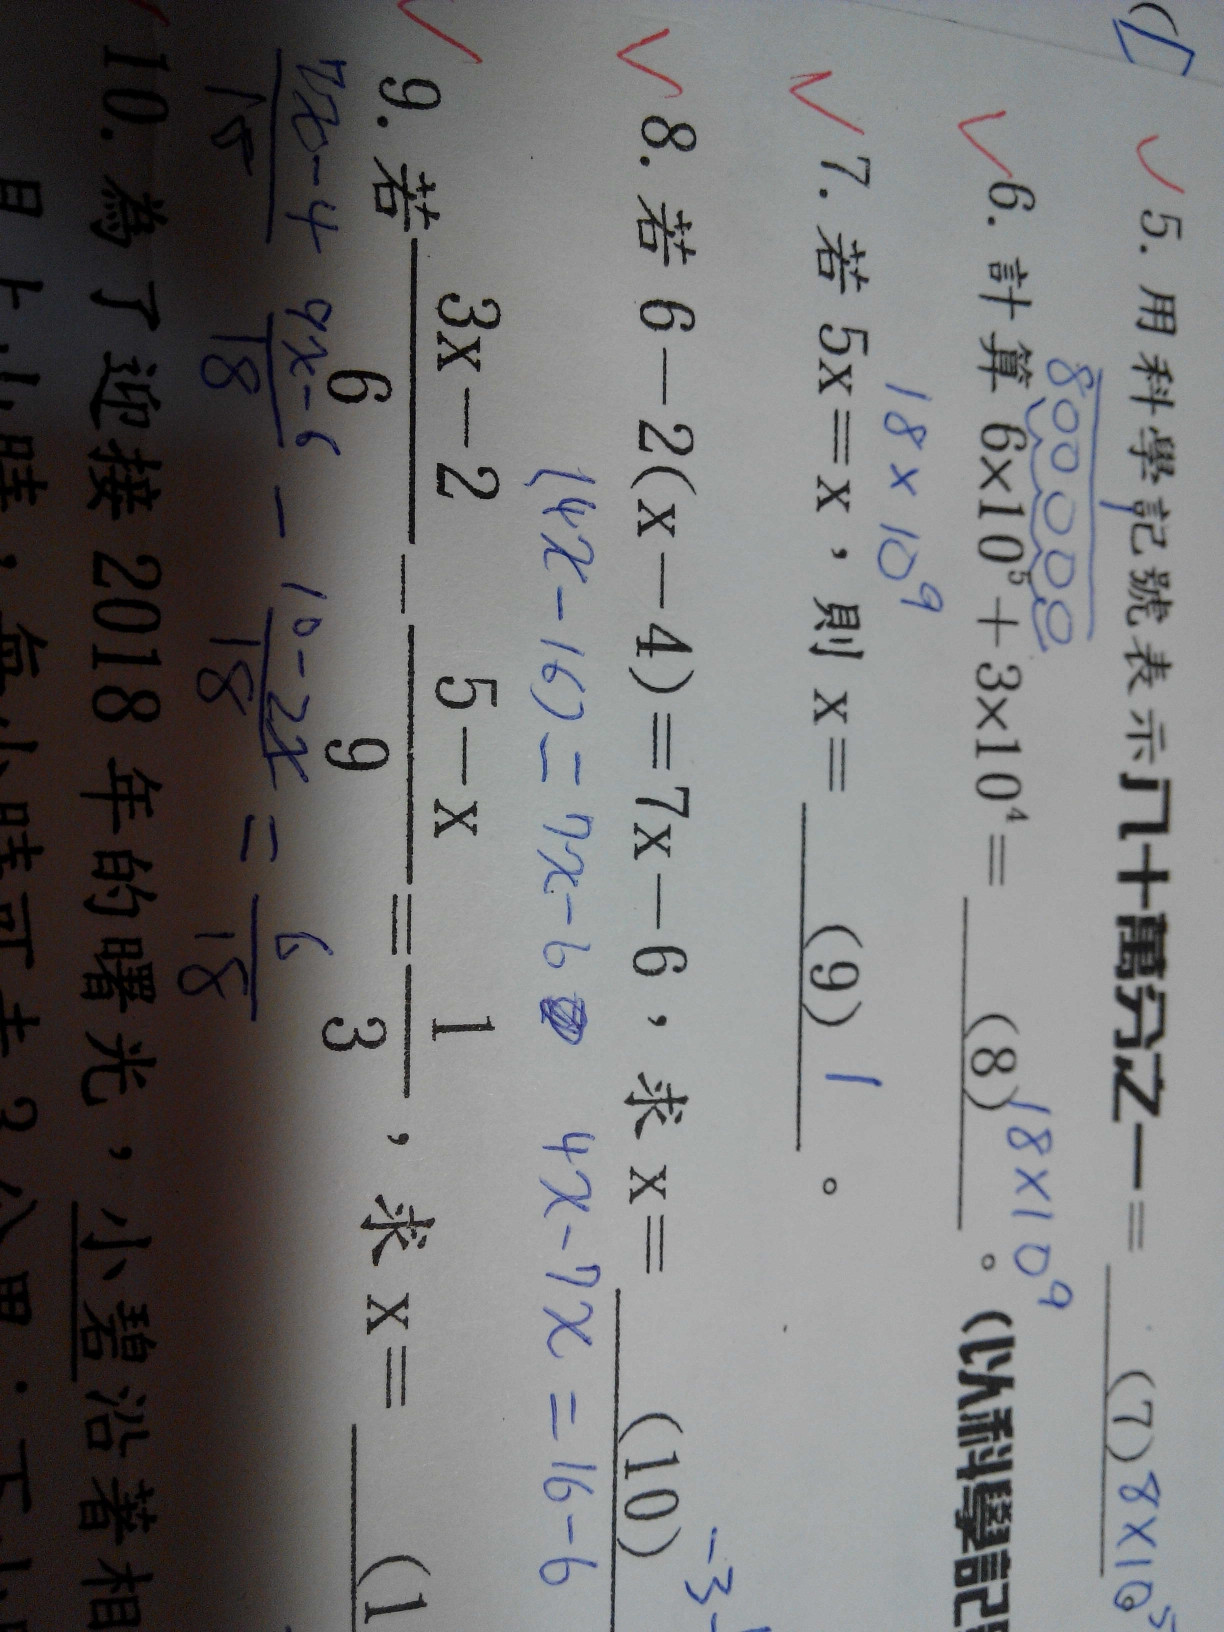 5. 用科學記號表示八十萬分之一= (7) 8×10⁵
800000
6. 計算 6×10⁵+3×10⁴= (8) 。(以科學記
18×10⁹
18×10⁹
7. 若 5x=x，則 x= (9) 1 。
8. 若 6-2(x-4)=7x-6，求 x= (10)
-3
(4x-16)=7x-6 4x-7x=16-6
9. 若 (3x-2)/6 - (5-x)/9 = 1/3，求 x= (1
(9x-6)/18 - (10-2x)/18 = 6/18
10. 為了迎接 2018 年的曙光，小碧沿著相